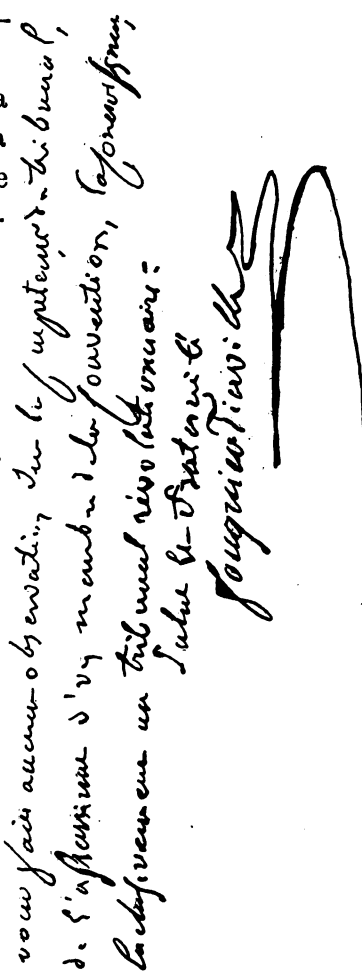 vous faire aucune observation sur la compétence du tribunal,
de l'assassinat d'un membre de la Convention,
exclusivement au tribunal révolutionnaire.
Salut et fraternité
Fouquier Tinville